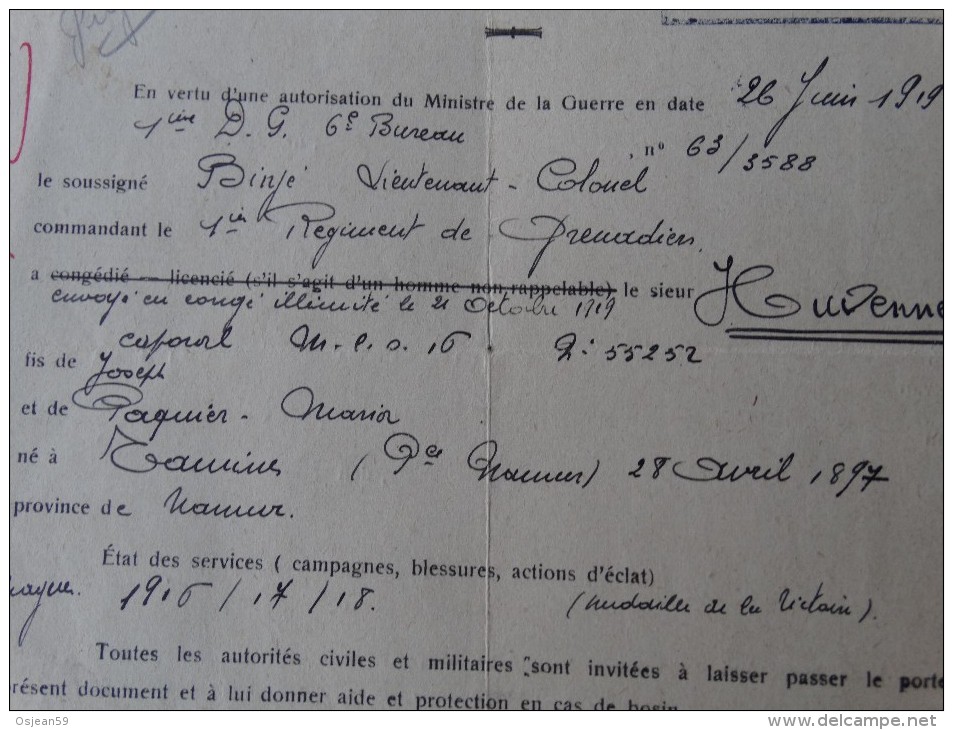 En vertu d'une autorisation du Ministre de la Guerre en date 26 Juin 1919
1ière D. G. 6e Bureau
, n° 63/3588
le soussigné Binjé Lieutenant-Colonel
commandant le 1ier Regiment de Grenadiers.
a congédié — licencié (s'il s'agit d'un homme non rappelable) le sieur Huvenne
envoyé en congé illimité le 21 Octobre 1919
caporal M.c.s. 16 2: 55252
fis de Joseph
et de Paquier - Maria
né à Tamines (Pce Namur) 28 avril 1897
province de Namur.
État des services ( campagnes, blessures, actions d'éclat)
1916 / 17 / 18. (médaille de la Victoire).
Toutes les autorités civiles et militaires sont invitées à laisser passer le porte
résent document et à lui donner aide et protection en cas de besin
Osjean59
www.delcampe.net